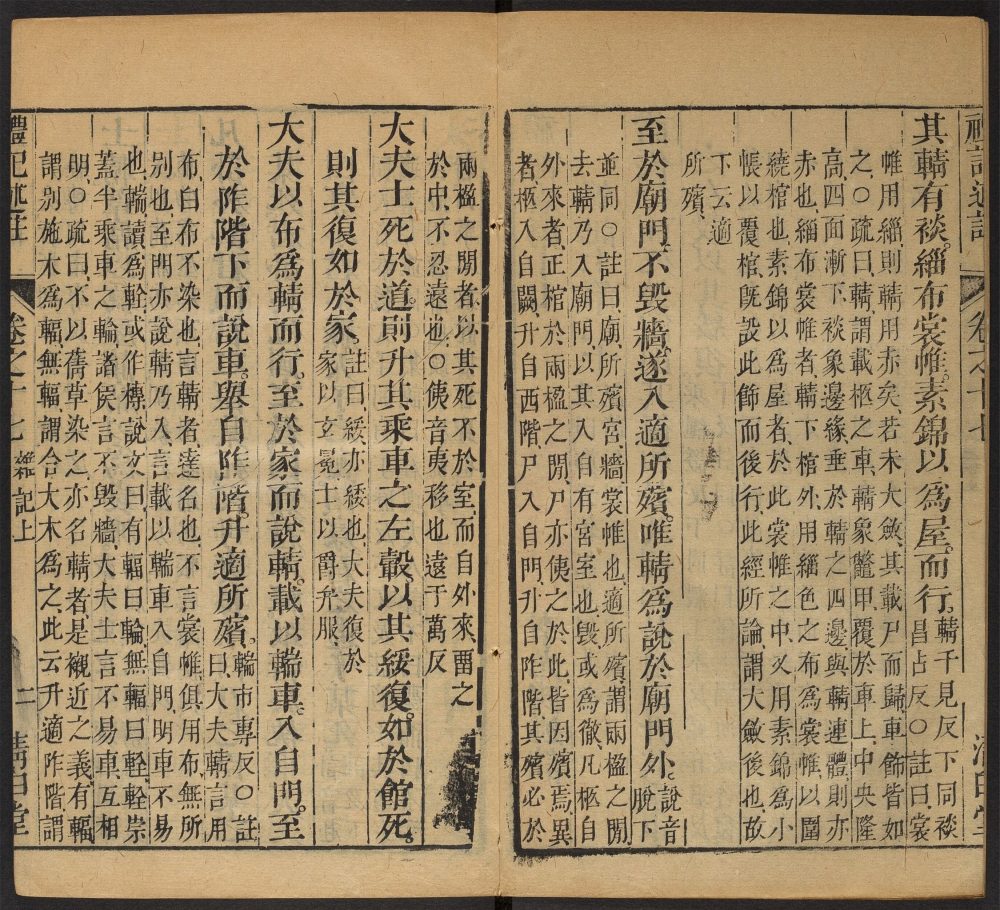 禮記述註
卷之十七
清白堂
其輤有裧緇布裳帷素錦以為屋而行輤千見反下同裧
昌占反○註曰裳
帷用緇則輤用赤矣若未大斂其載尸而歸車飾皆如
之○疏曰輤謂載柩之車輤象鼈甲覆於車上中央隆
高四面漸下裧象邊緣垂於輤之四邊與輤連體則亦
赤也緇布裳帷者輤下棺外用緇色之布為裳帷以圍
繞棺也素錦以為屋者於此裳帷之中又用素錦為小
帳以覆棺旣設此飾而後行此經所論謂大斂後也故
下云適
所殯
至於廟門不毀牆遂入適所殯唯輤為說於廟門外說音
脫下
並同○註曰廟所殯宮牆裳帷也適所殯謂兩楹之閒
去輤乃入廟門以其入自有宮室也毀或為徹凡柩自
外來者正棺於兩楹之閒尸亦侇之於此皆因殯焉異
者柩入自闕升自西階尸入自門升自阼階其殯必於
兩楹之閒者以其死不於室而自外來畱之
於中不忍遠也○侇音夷移也遠于萬反
大夫士死於道則升其乘車之左轂以其綏復如於館死
則其復如於家註曰綏亦緌也大夫復於
家以玄冕士以爵弁服
大夫以布為輤而行至於家而說輤載以輲車入自門至
於阼階下而說車舉自阼階升適所殯輲市專反○註
曰大夫輤言用
布白布不染也言輤者達名也不言裳帷俱用布無所
別也至門亦說輤乃入言載以輲車入自門明車不易
也輲讀為輇或作槫說文曰有輻曰輪無輻曰輇輇崇
蓋半乘車之輪諸侯言不毀牆大夫士言不易車互相
明○疏曰不以蒨草染之亦名輤者是襯近之義有輻
謂別施木為輻無輻謂合大木為之此云升適阼階謂
禮記述註
卷之十七 雜記上
二
清白堂